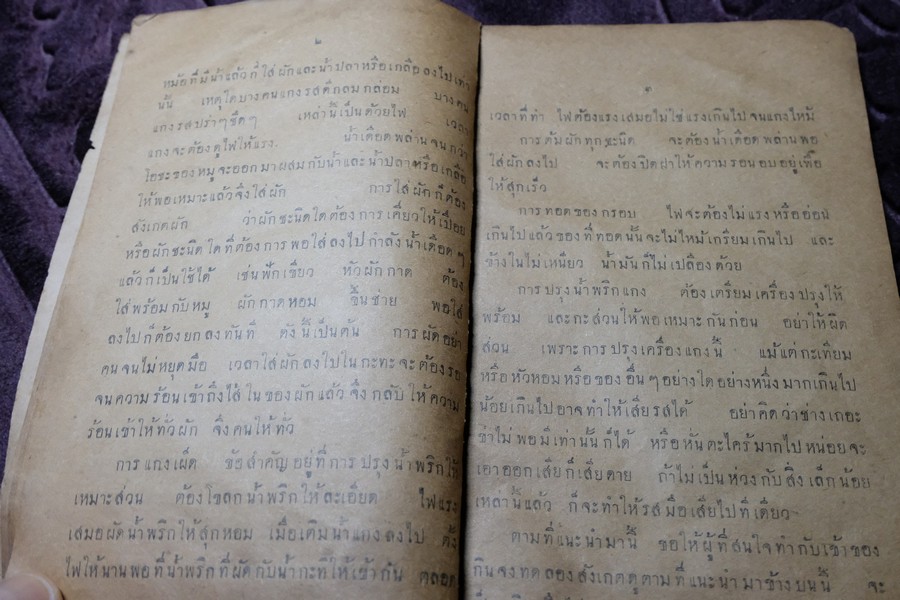 ๒
หม้อที่มีน้ำแล้วก็ใส่ผักและน้ำปลาหรือเกลือลงไปเท่า
นั้น เหตุใดบางคนแกงรสดีกลมกล่อม บางคน
แกงรสปร่าๆชืดๆ เหล่านี้เป็นด้วยไฟ เวลา
แกงจะต้องดูไฟให้แรง. น้ำเดือดพล่านจนกว่า
โอชะของหมูจะออกมาผสมกับน้ำและน้ำปลาหรือเกลือ
ให้พอเหมาะแล้วจึงใส่ผัก การใส่ผักก็ต้อง
สังเกตผัก ว่าผักชะนิดใดต้องการเคี่ยวให้เปื่อย
หรือผักชะนิดใดที่ต้องการพอใส่ลงไปกำลังน้ำเดือดๆ
แล้วก็เป็นใช้ได้ เช่นฟักเขียว หัวผักกาด ต้อง
ใส่พร้อมกับหมู ผักกาดหอม ขึ้นช่าย พอใส่
ลงไปก็ต้องยกลงทันที ดังนี้เป็นต้น การผัดอย่า
คนจนไม่หยุดมือ เวลาใส่ผักลงไปในกะทะจะต้องรอ
จนความร้อนเข้าถึงไส้ในของผักแล้ว จึงกลับให้ความ
ร้อนเข้าให้ทั่วผัก จึงคนให้ทั่ว
การแกงเผ็ด ข้อสำคัญอยู่ที่การปรุงน้ำพริกให้
เหมาะส่วน ต้องโขลกน้ำพริกให้ละเอียด ไฟแรง
เสมอผัดน้ำพริกให้สุกหอม เมื่อเติมน้ำแกงลงไป ตั้ง
ไฟให้นานพอที่น้ำพริกที่ผัดกับน้ำกะทิให้เข้ากัน ตลอด
๓
เวลาที่ทำ ไฟต้องแรงเสมอไม่ใช่แรงเกินไปจนแกงไหม้
การต้มผักทุกชะนิด จะต้องน้ำเดือดพล่านพอ
ใส่ผักลงไป จะต้องปิดฝาให้ความรอนอบอยู่เพื่อ
ให้สุกเร็ว
การทอดของกรอบ ไฟจะต้องไม่แรงหรืออ่อน
เกินไปแล้วของที่ทอดนั้นจะไม่ไหม้เกรียมเกินไป และ
ข้างในไม่เหนียว น้ำมันก็ไม่เปลืองด้วย
การปรุงน้ำพริกแกง ต้องเตรียมเครื่องปรุงให้
พร้อม และกะส่วนให้พอเหมาะกันก่อน อย่าให้ผิด
ส่วน เพราะการปรุงเครื่องแกงนี้ แม้แต่กะเทียม
หรือหัวหอมหรือของอื่นๆอย่างใดอย่างหนึ่งมากเกินไป
น้อยเกินไปอาจทำให้เสียรสได้ อย่าคิดว่าช่างเถอะ
ข่าไม่พอมีเท่านั้นก็ได้ หรือหั่นตะไคร้มากไปหน่อยจะ
เอาออกเสียก็เสียดาย ถ้าไม่เป็นห่วงกับสิ่งเล็กน้อย
เหล่านี้แล้ว ก็จะทำให้รสมือเสียไปทีเดียว
ตามที่แนะนำมานี้ ขอให้ผู้ที่สนใจทำกับเข้าของ
กินจงทดลองสังเกตดูตามที่แนะนำมาข้างบนนี้ จะ